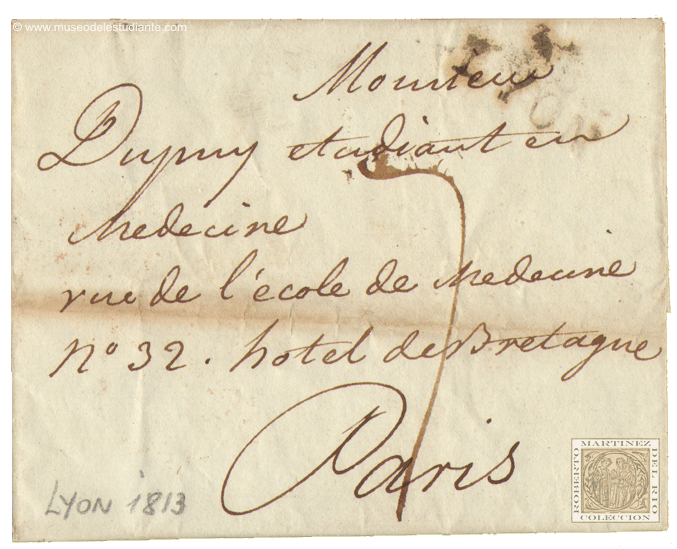 © www.museodelestudiante.com
Monsieur
Dupuy etudiant en
Medecine
rue de l'école de Medecine
n° 32. hotel de Bretagne
Paris
7
LYON 1813
ROBERTO MARTINEZ DEL RIO COLECCION